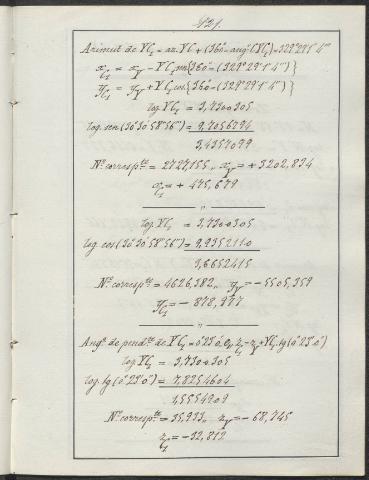 421.
Azimut de VC₁ = az. VC + (360° - angº CVC₁) = 329°29'1"4'''
x_C₁ = x_V - VC₁ sen{360° - (329°29'1"4''')}
y_C₁ = y_V + VC₁ cos{360° - (329°29'1"4''')}
log. VC₁ = 3,7300305
log. sen (30°30'58"56''') = 9,7056794
3,4357099
Nº corresp.te = 2727,155 „ x_V = + 3202,834
x_C₁ = + 475,679
„
log. VC₁ = 3,7300305
log. cos (30°30'58"56''') = 9,9352110
3,6652415
Nº corresp.te = 4626,382 „ y_V = - 5505,359
y_C₁ = - 878,977
„
Angº de pend.te de VC₁ = 0°23'0", z_C₁ = z_V + VC₁ . tg (0°23'0")
log. VC₁ = 3,7300305
log. tg (0°23'0") = 7,8254604
1,5554909
Nº corresp.te = 35,933 „ z_V = - 68,745
z_C₁ = - 32,812